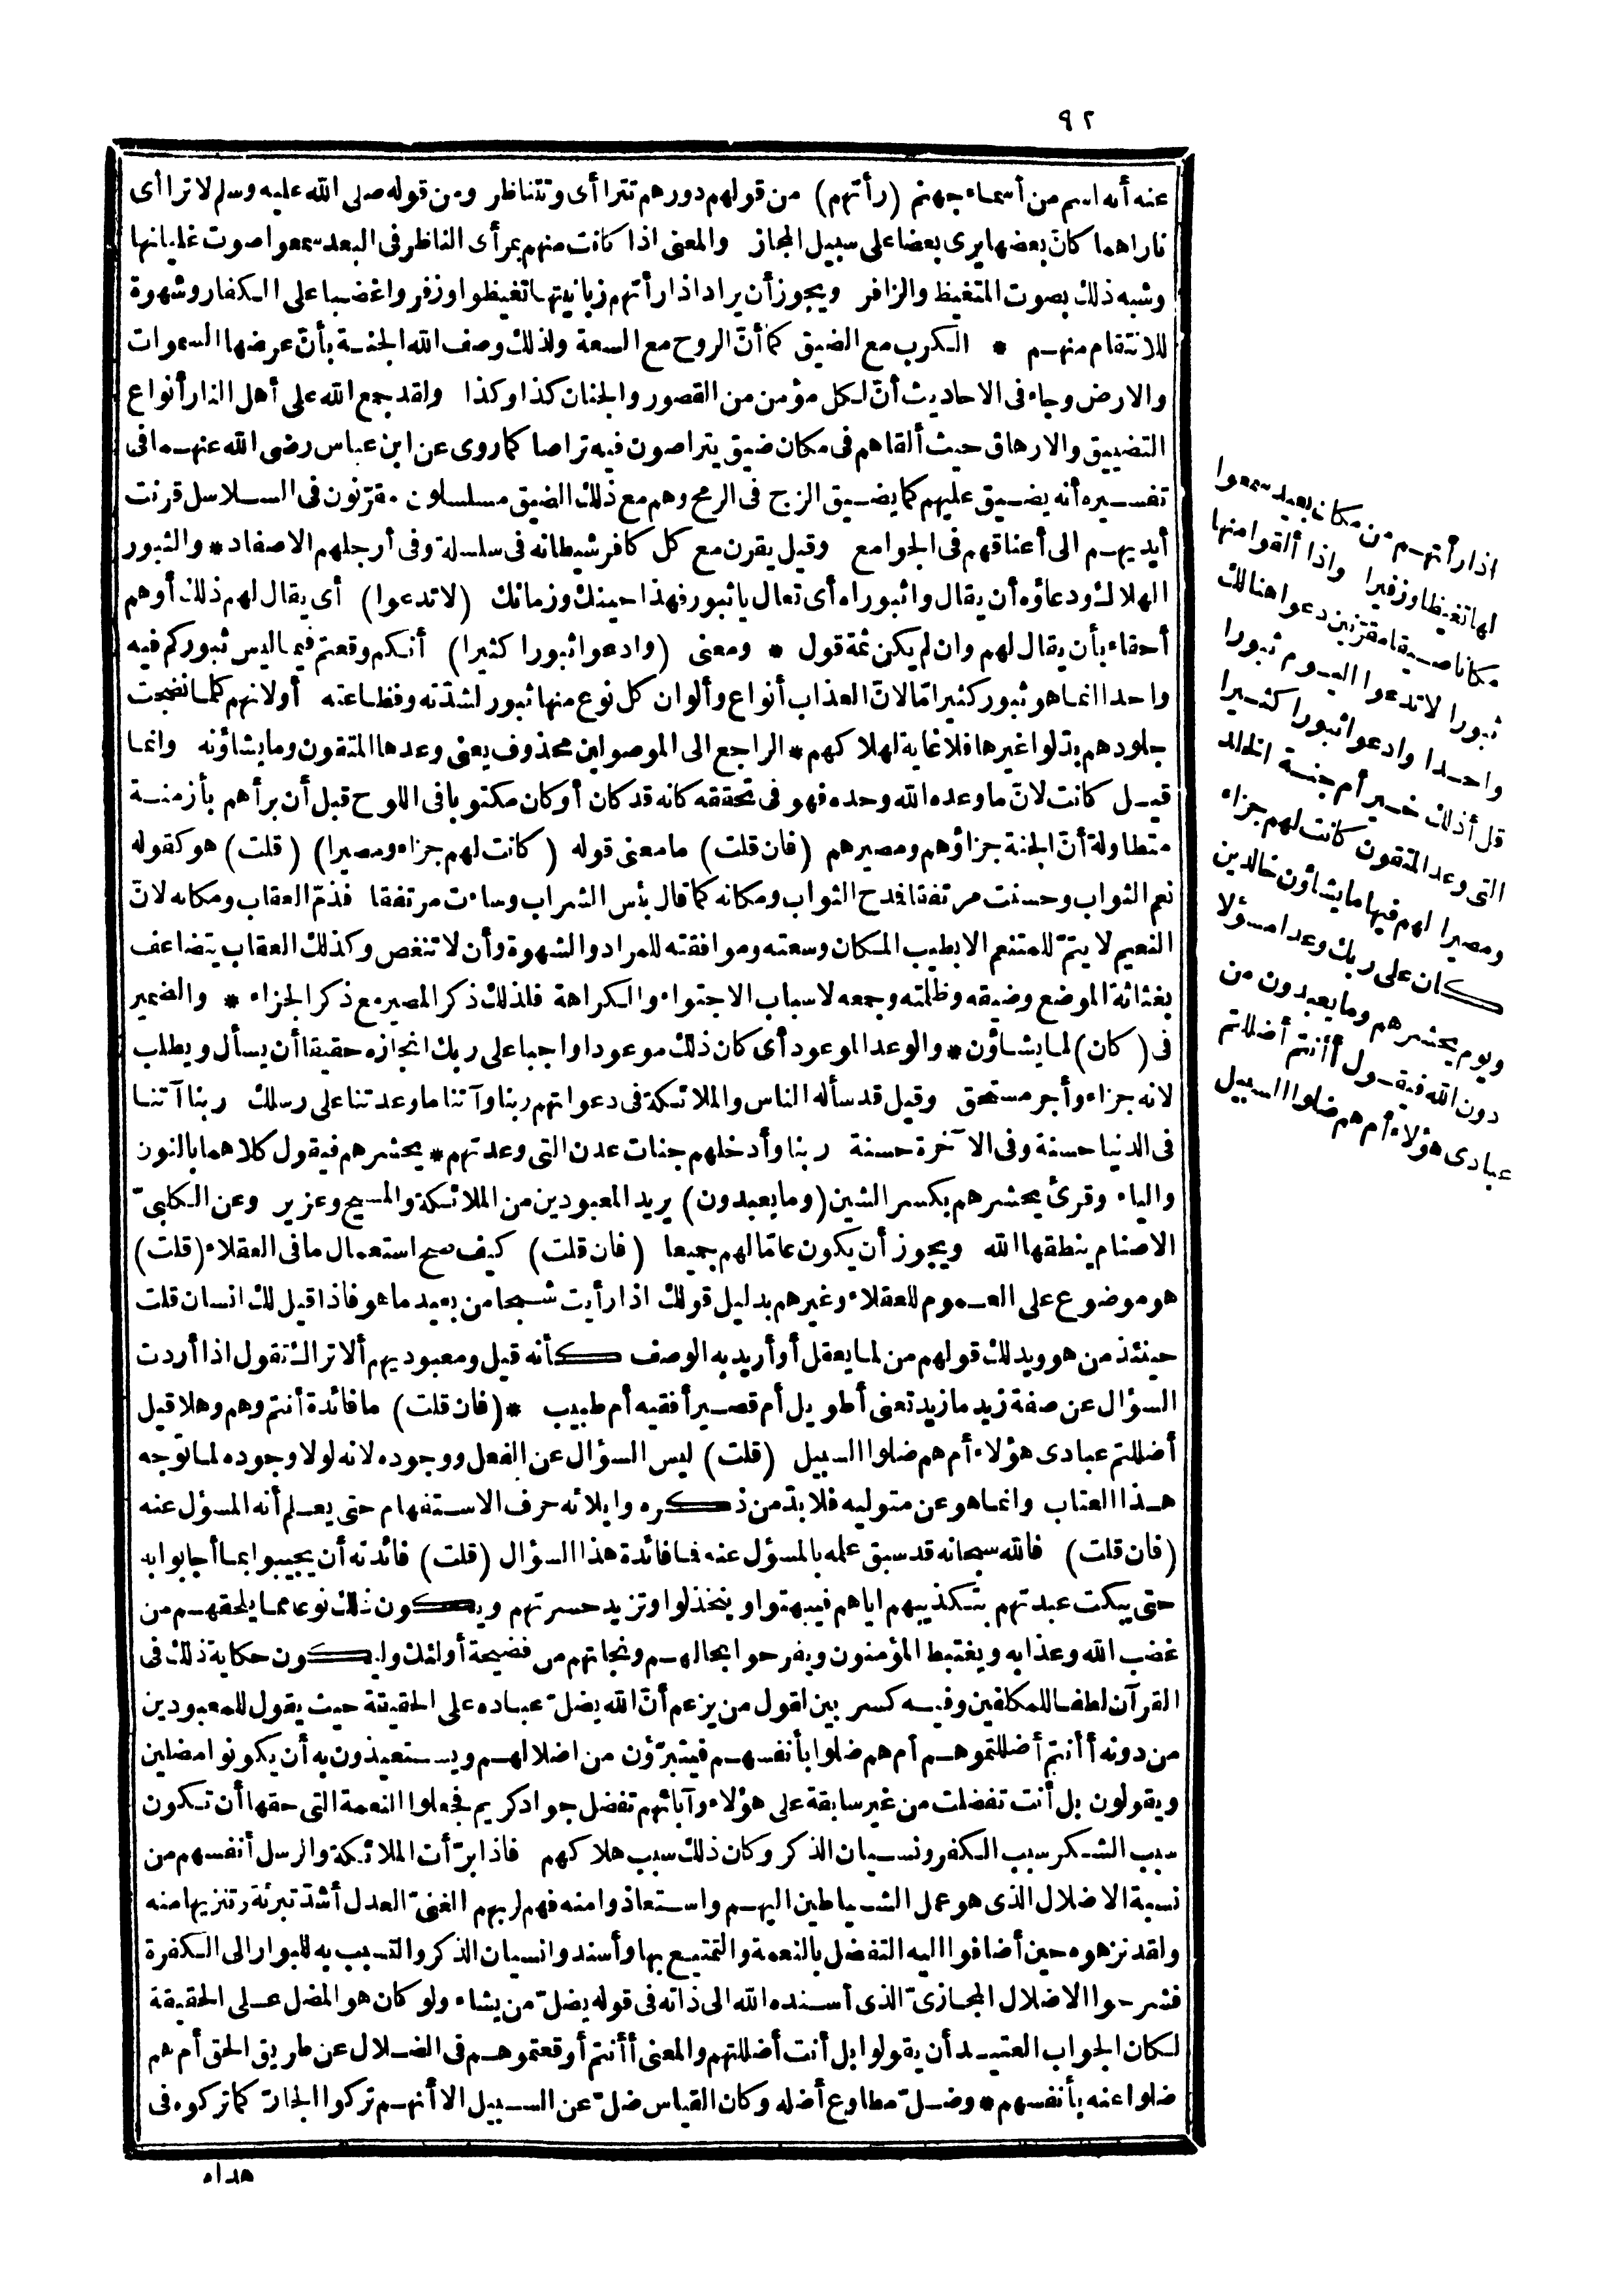 ٩٢
عنه أنه اسم من أسماء جهنم (رأتهم) من قولهم دورهم تترا أى وتتناظر ومن قوله صلى الله عليه وسلم لا ترا أى
ناراهما كأن بعضها يرى بعضا على سبيل المجاز والمعنى اذا كانت منهم بمرأى الناظر فى البعد سمعوا صوت غليانها
وشبه ذلك بصوت المتغيظ والزافر ويجوز أن يراد اذا رأتهم زبانيتها تغيظوا وزفروا غضبا على الكفار وشهوة
للانتقام منهم * الكرب مع الضيق كما أنّ الروح مع السعة ولذلك وصف الله الجنة بأنّ عرضها السموات
والارض وجاء فى الاحاديث أنّ لكل مؤمن من القصور والجنان كذا وكذا ولقد جمع الله على أهل النار أنواع
التضييق والارهاق حيث ألقاهم فى مكان ضيق يتراصون فيه تراصا كما روى عن ابن عباس رضى الله عنهما فى
تفسيره أنه يضيق عليهم كما يضيق الزج فى الرمح وهم مع ذلك الضيق مسلسلون مقرّنون فى السلاسل قرنت
أيديهم الى أعناقهم فى الجوامع وقيل يقرن مع كل كافر شيطانه فى سلسلة وفى أرجلهم الاصفاد * والثبور
الهلاك ودعاؤه أن يقال واثبوراه أى تعال ياثبور فهذا حينك وزمانك (لا تدعوا) أى يقال لهم ذلك أوهم
أحقاء بأن يقال لهم وان لم يكن ثمة قول * ومعنى (وادعوا ثبورا كثيرا) أنكم وقعتم فيما ليس ثبوركم فيه
واحدا انما هو ثبور كثير امّا لانّ العذاب أنواع وألوان كل نوع منها ثبور لشدّته وفظاعته أولانهم كلما نضجت
جلودهم بدّلوا غيرها فلا غاية لهلاكهم * الراجع الى الموصولين محذوف يعنى وعدها المتقون وما يشاؤنه وانما
قيل كانت لانّ ما وعده الله وحده فهو فى تحققه كانه قد كان أو كان مكتوبا فى اللوح قبل أن برأهم بأزمنة
متطاولة أنّ الجنة جزاؤهم ومصيرهم (فان قلت) ما معنى قوله (كانت لهم جزاء ومصيرا) (قلت) هو كقوله
نعم الثواب وحسنت مرتفقا فدح الثواب ومكانه كما قال بئس الشراب وساءت مرتفقا فذمّ العقاب ومكانه لانّ
النعيم لا يتمّ للمتنعم الا بطيب المكان وسعته وموافقته للمراد والشهوة وأن لا تنغص وكذلك العقاب يتضاعف
بغثاثة الموضع وضيقه وظلمته وجمعه لاسباب الاجتواء والكراهة فلذلك ذكر المصير مع ذكر الجزاء * والضمير
فى (كان) لما يشاؤن * والوعد الموعود أى كان ذلك موعودا واجبا على ربك انجازه حقيقا أن يسأل ويطلب
لانه جزاء وأجر مستحق وقيل قد سأله الناس والملائكة فى دعواتهم ربنا وآتنا ما وعدتنا على رسلك ربنا آتنا
فى الدنيا حسنة وفى الآخرة حسنة ربنا وأدخلهم جنات عدن التى وعدتهم * يحشرهم فيقول كلاهما بالنون
والياء وقرئ يحشرهم بكسر الشين (وما يعبدون) يريد المعبودين من الملائكة والمسيح وعزير وعن الكلبىّ
الاصنام ينطقها الله ويجوز أن يكون عامّا لهم جميعا (فان قلت) كيف صح استعمال ما فى العقلاء (قلت)
هو موضوع على العموم للعقلاء وغيرهم بدليل قولك اذا رأيت شبحا من بعيد ما هو فاذا قيل لك انسان قلت
حينئذ من هو ويدلك قولهم من لما يعقل أو أريد به الوصف كأنه قيل ومعبوديهم ألا تراك تقول اذا أردت
السؤال عن صفة زيد ما زيد تعنى أطويل أم قصير أفقيه أم طبيب * (فان قلت) ما فائدة أنتم وهم وهلا قيل
أضللتم عبادى هؤلاء أم هم ضلوا السبيل (قلت) ليس السؤال عن الفعل ووجوده لانه لولا وجوده لما توجه
هذا العتاب وانما هو عن متوليه فلا بدّ من ذكره وايلائه حرف الاستفهام حتى يعلم أنه المسؤل عنه
(فان قلت) فالله سبحانه قد سبق علمه بالمسؤل عنه فما فائدة هذا السؤال (قلت) فائدته أن يجيبوا بما أجابوا به
حتى يبكت عبدتهم بتكذيبهم اياهم فيبهتوا وينخذلوا وتزيد حسرتهم ويكون ذلك نوعا مما يلحقهم من
غضب الله وعذابه ويغتبط المؤمنون ويفرحوا بحالهم ونجاتهم من فضيحة أولئك وليكون حكاية ذلك فى
القرآن لطفا للمكلفين وفيه كسر بين لقول من يزعم أنّ الله يضلّ عباده على الحقيقة حيث يقول للمعبودين
من دونه أأنتم أضللتموهم أم هم ضلوا بأنفسهم فيتبرّؤن من اضلالهم ويستعيذون به أن يكونوا مضلين
ويقولون بل أنت تفضلت من غير سابقة على هؤلاء وآبائهم تفضل جواد كريم فجعلوا النعمة التى حقها أن تكون
سبب الشكر سبب الكفر ونسيان الذكر وكان ذلك سبب هلاكهم فاذا برّأت الملائكة والرسل أنفسهم من
نسبة الاضلال الذى هو عمل الشياطين اليهم واستعاذوا منه فهم لربهم الغنىّ العدل أشدّ تبرئة وتنزيها منه
ولقد نزهوه حين أضافوا اليه التفضل بالنعمة والتمتيع بها وأسندوا نسيان الذكر والتسبب به للبوار الى الكفرة
فشرحوا الاضلال المجازىّ الذى أسنده الله الى ذاته فى قوله يضلّ من يشاء ولو كان هو المضل على الحقيقة
لكان الجواب العتيد أن يقولوا بل أنت أضللتهم والمعنى أأنتم أوقعتموهم فى الضلال عن طريق الحق أم هم
ضلوا عنه بأنفسهم * وضلّ مطاوع أضله وكان القياس ضلّ عن السبيل الا أنهم تركوا الجارّ كما تركوه فى
هداه
اذا رأتهم من مكان بعيد سمعوا
لها تغيظا وزفيرا واذا ألقوا منها
مكانا ضيقا مقرّنين دعوا هنالك
ثبورا لا تدعوا اليوم ثبورا
واحدا وادعوا ثبورا كثيرا
قل أذلك خير أم جنة الخلد
التى وعد المتقون كانت لهم جزاء
ومصيرا لهم فيها ما يشاؤن خالدين
كان على ربك وعدا مسؤلا
ويوم يحشرهم وما يعبدون من
دون الله فيقول أأنتم أضللتم
عبادى هؤلاء أم هم ضلوا السبيل